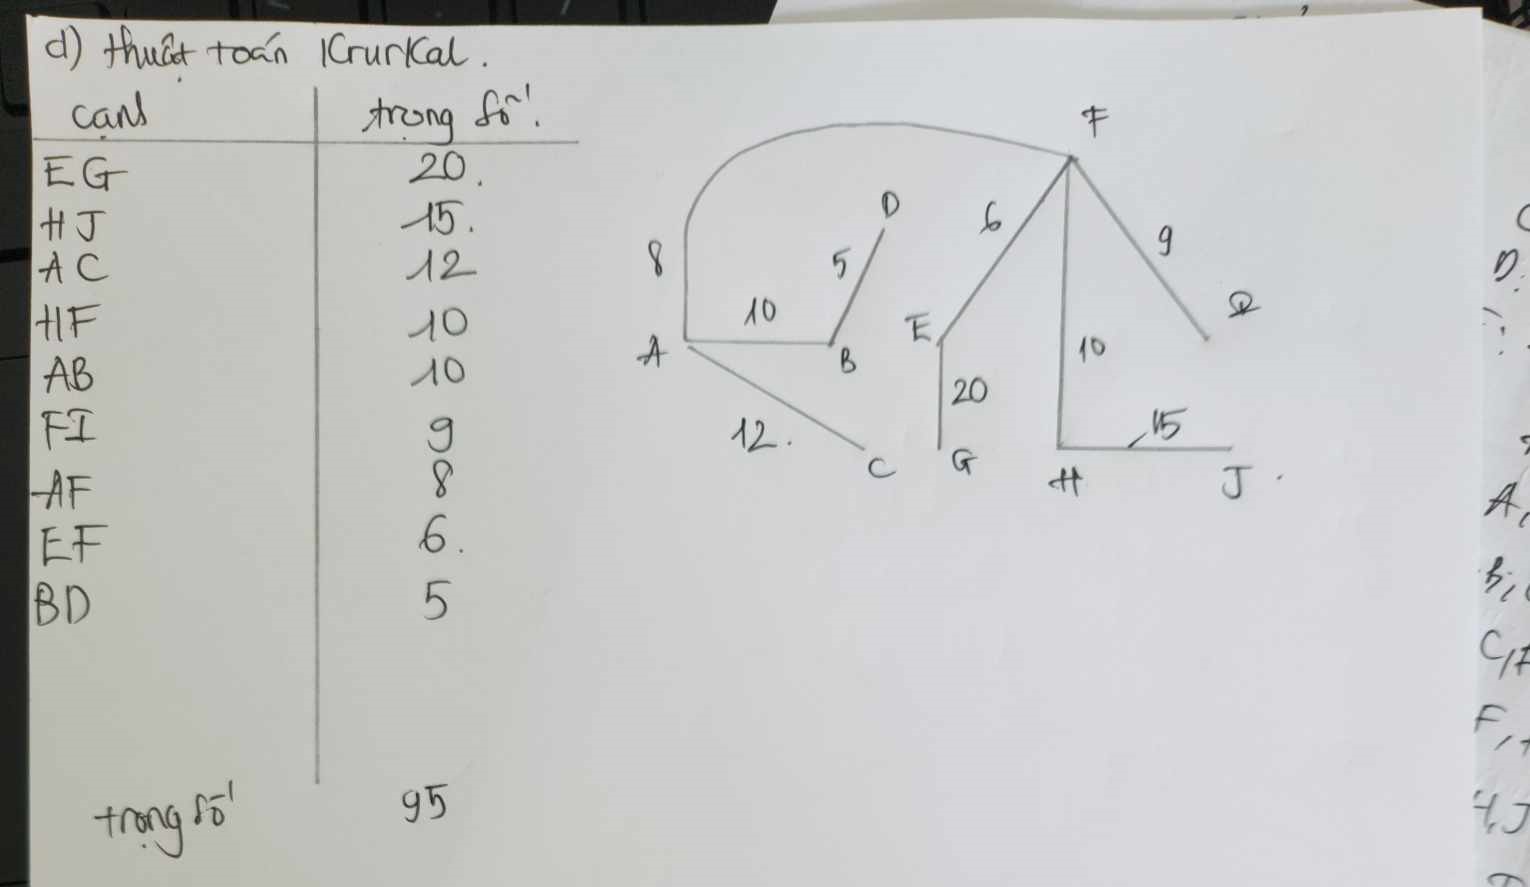 d) thuật toán Kruskal.
cạnh trọng số.
EG 20.
HJ 15.
AC 12
HF 10
AB 10
FI 9
AF 8
EF 6.
BD 5
trọng số 95
F
D
6
9
8
5
10
E
A
B
10
20
12.
15
C
G
H
J.
D.
A,
B,
C,F
F,
H,J